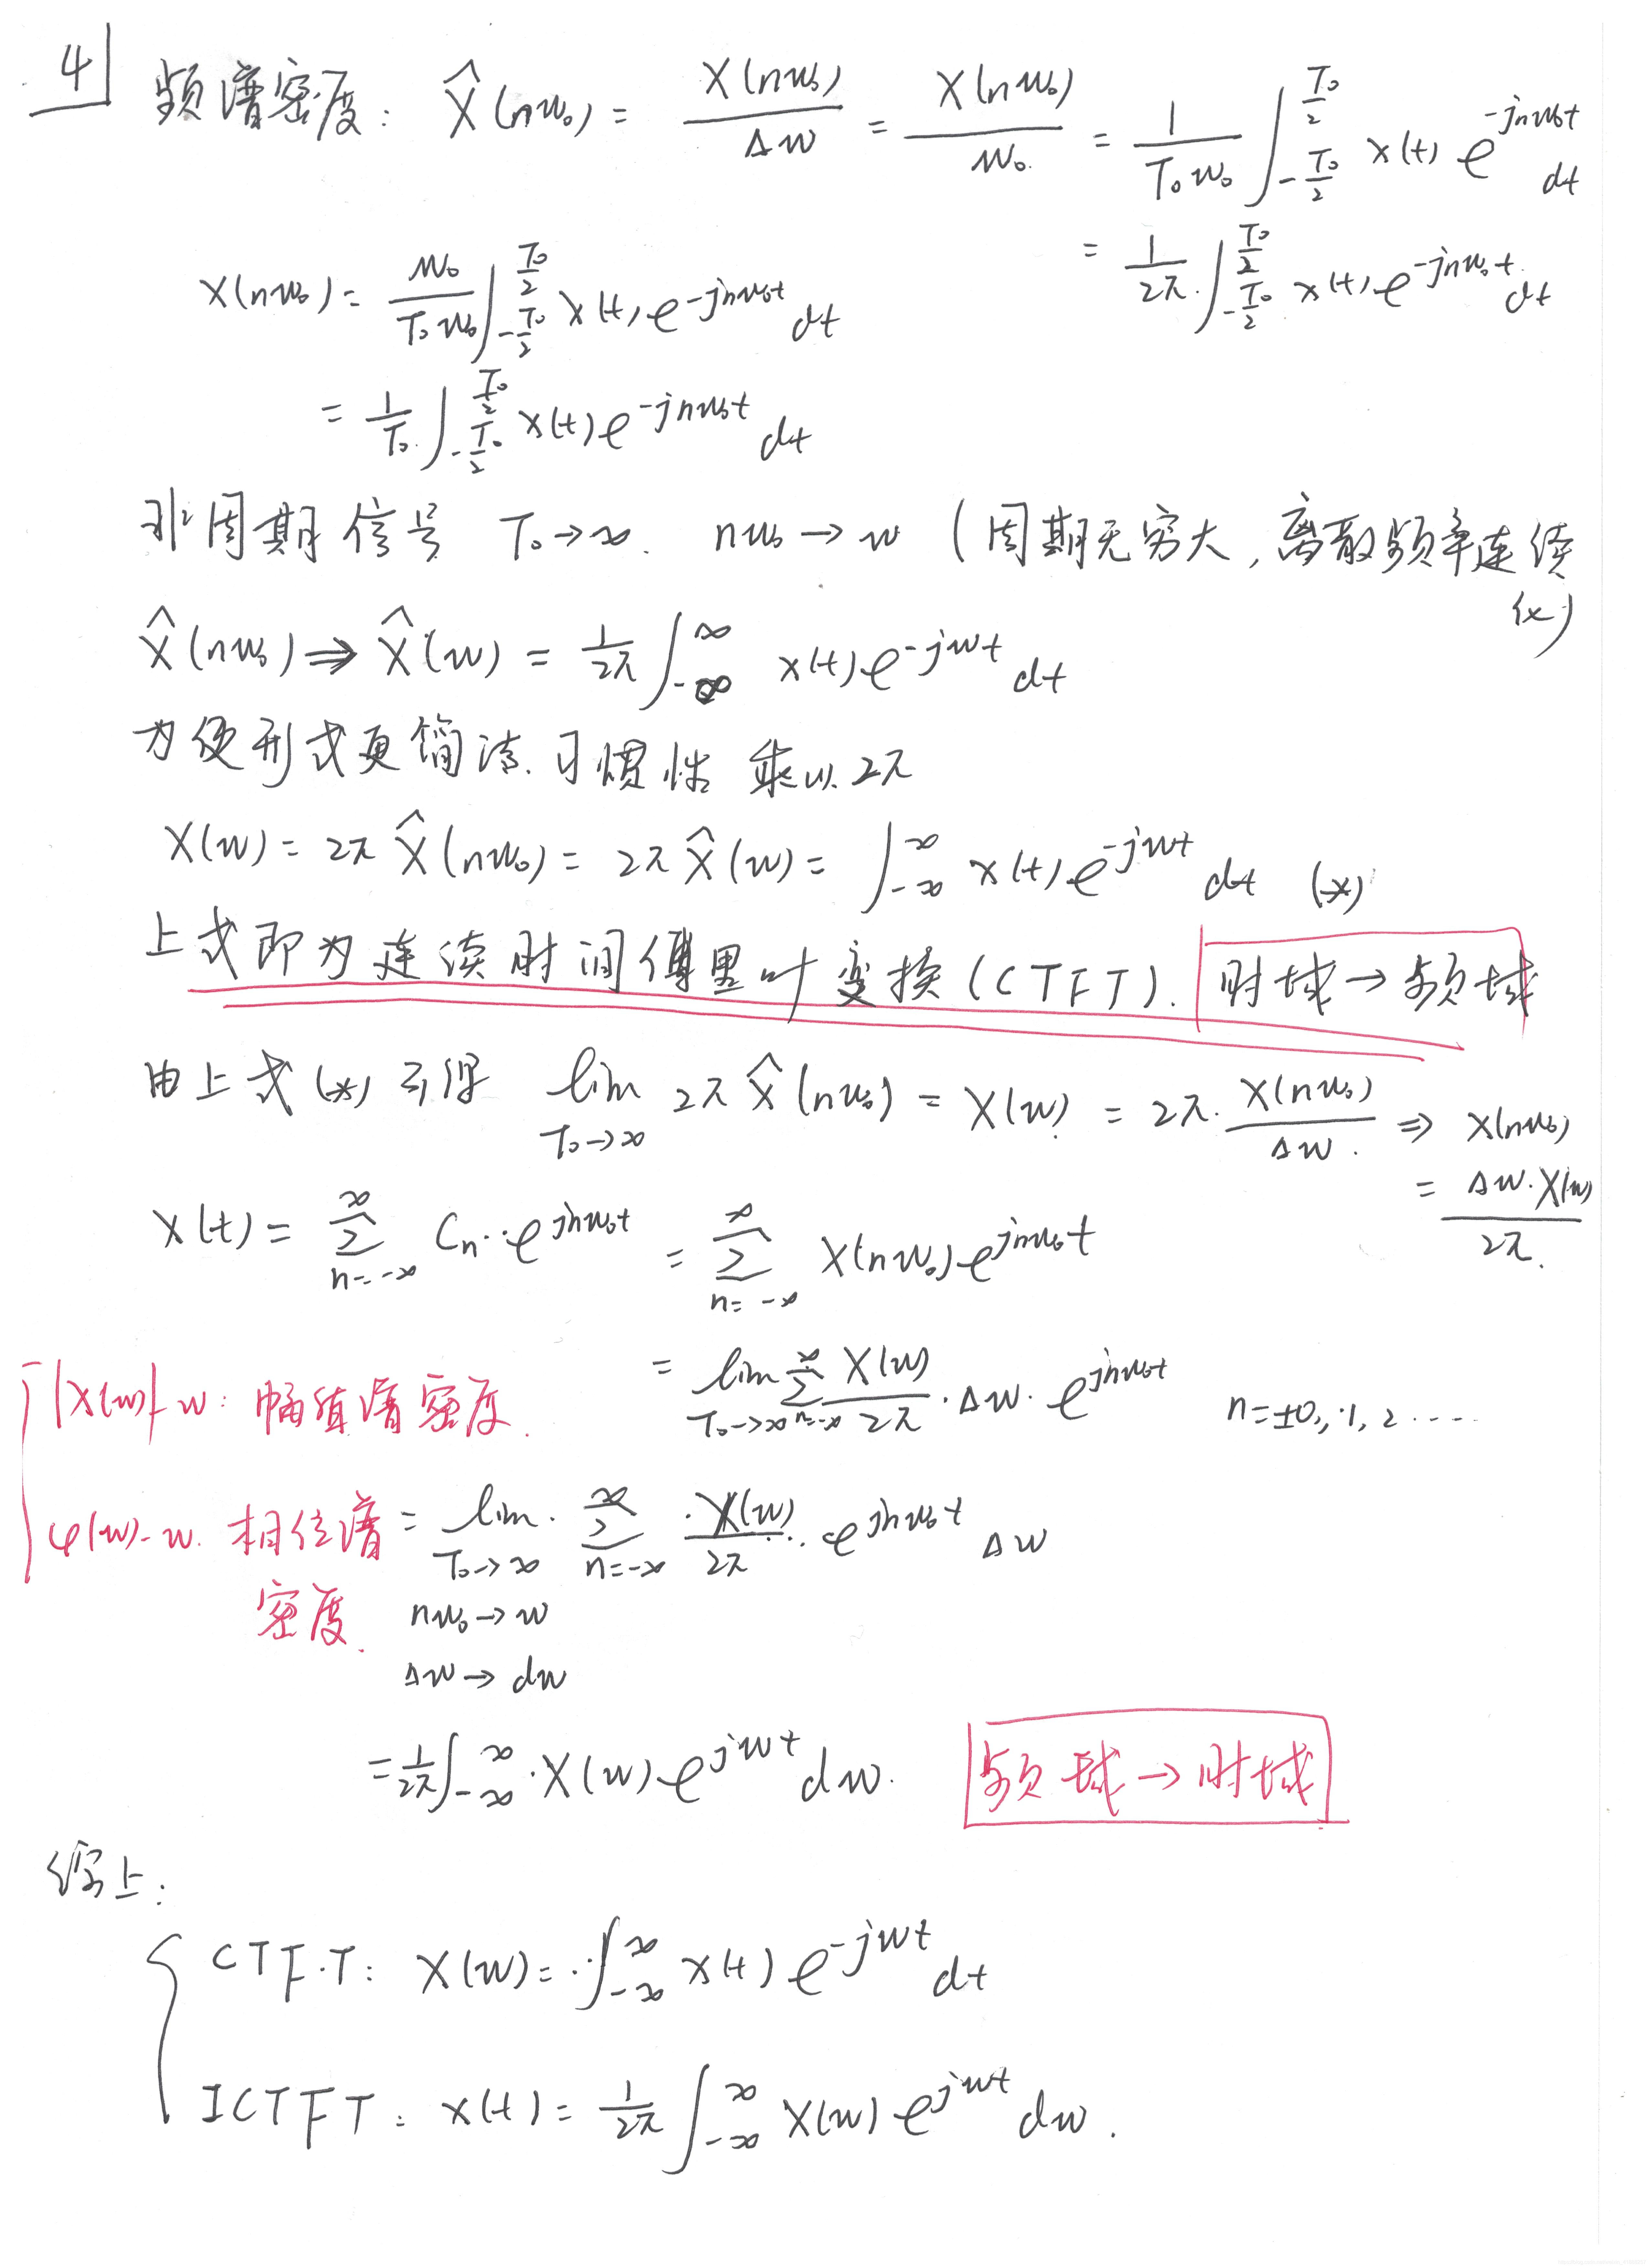 4
频谱密度: X̂(nw₀) = X(nw₀)/Δw = X(nw₀)/w₀ = 1/(T₀w₀) ∫_{-T₀/2}^{T₀/2} x(t) e^{-jnw₀t} dt
= 1/2π ∫_{-T₀/2}^{T₀/2} x(t) e^{-jnw₀t} dt
X(nw₀) = w₀/(T₀w₀) ∫_{-T₀/2}^{T₀/2} x(t) e^{-jnw₀t} dt
= 1/T₀ ∫_{-T₀/2}^{T₀/2} x(t) e^{-jnw₀t} dt
非周期信号 T₀→∞. nw₀→w (周期无穷大,离散频率连续
化)
X̂(nw₀) ⇒ X̂(w) = 1/2π ∫_{-∞}^{∞} x(t) e^{-jwt} dt
为使形式更简洁.习惯性 乘以2π
X(w) = 2π X̂(nw₀) = 2π X̂(w) = ∫_{-∞}^{∞} x(t) e^{-jwt} dt (*)
上式即为连续时间傅里叶变换(CTFT). 时域→频域
由上式(*)可得 lim_{T₀→∞} 2π X̂(nw₀) = X(w) = 2π · X(nw₀)/Δw ⇒ X(nw₀)
= Δw·X(w)/2π.
X(t) = ∑_{n=-∞}^{∞} Cn·e^{jnw₀t} = ∑_{n=-∞}^{∞} X(nw₀) e^{jnw₀t}
= lim_{T₀→∞} ∑_{n=-∞}^{∞} X(w)/2π · Δw · e^{jnw₀t} n=±0,·1,2 ····
|X(w)|-w: 幅值谱密度.
φ(w)-w. 相位谱
密度.
= lim_{T₀→∞} ∑_{n=-∞}^{∞} X(w)/2π · e^{jnw₀t} Δw
nw₀→w
Δw→dw
= 1/2π ∫_{-∞}^{∞} ·X(w) e^{jwt} dw. 频域→时域
综上:
CTF.T: X(w) = ∫_{-∞}^{∞} x(t) e^{-jwt} dt
ICTFT: x(t) = 1/2π ∫_{-∞}^{∞} X(w) e^{jwt} dw.